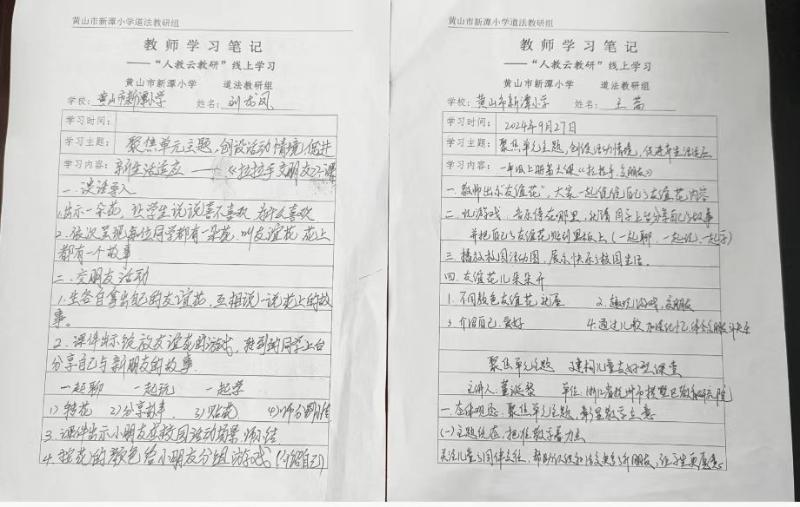 黄山市新潭小学道法教研组
教师学习笔记
——“人教云教研”线上学习
黄山市新潭小学 道法教研组
学校：黄山市新潭小学 姓名：
学习时间：
学习主题：聚焦单元主题，创设活动情境，促进
学习内容：新生活适应——《拉拉手交朋友》2课
一.谈话导入
1.出示一朵花，让学生说说喜不喜欢 为什么喜欢
2.依次呈现每位同学都有一朵花，叫友谊花，花上
都有一个故事
二.交朋友活动
1.生各自拿出自己的友谊花，互相说一说花上的故
事。
2.课件出示绽放友谊花的游戏，找到的同学上台
分享自己与新朋友的故事
一起聊 一起玩 一起学
1）转花 2）分享故事 3）贴花 4）师
3.课件出示小朋友在校园活动场景，师小结
4.按花的颜色给小朋友分组游戏（介绍自己）
黄山市新潭小学道法教研组
教师学习笔记
——“人教云教研”线上学习
黄山市新潭小学 道法教研组
学校：黄山市新潭小学 姓名：王
学习时间：2024年9月27日
学习主题：聚焦单元主题，创设活动情境，促进新生活适应
学习内容：一年级上册第 课《拉拉手，交朋友》
一.教师出示“友谊花”，大家一起 自己的友谊花内容
二.玩游戏，音乐停在哪里，就请同学上台分享自己的故事
并把自己的友谊花贴到黑板上（一起聊，一起玩，一起学）
三.播放校园活动图，展示快乐的校园生活。
四.友谊花儿朵朵开
1.不同颜色友谊花 2.趣玩游戏，交朋友
3.介绍自己，爱好 4.通过儿歌
聚焦单元主题 建构儿童友好型课堂
主讲人：董 单位：浙江省杭州市
一.整体观照，聚焦单元主题，彰显教学立意
(一)主题统应，把准教学着力点
关注儿童的同伴交往，